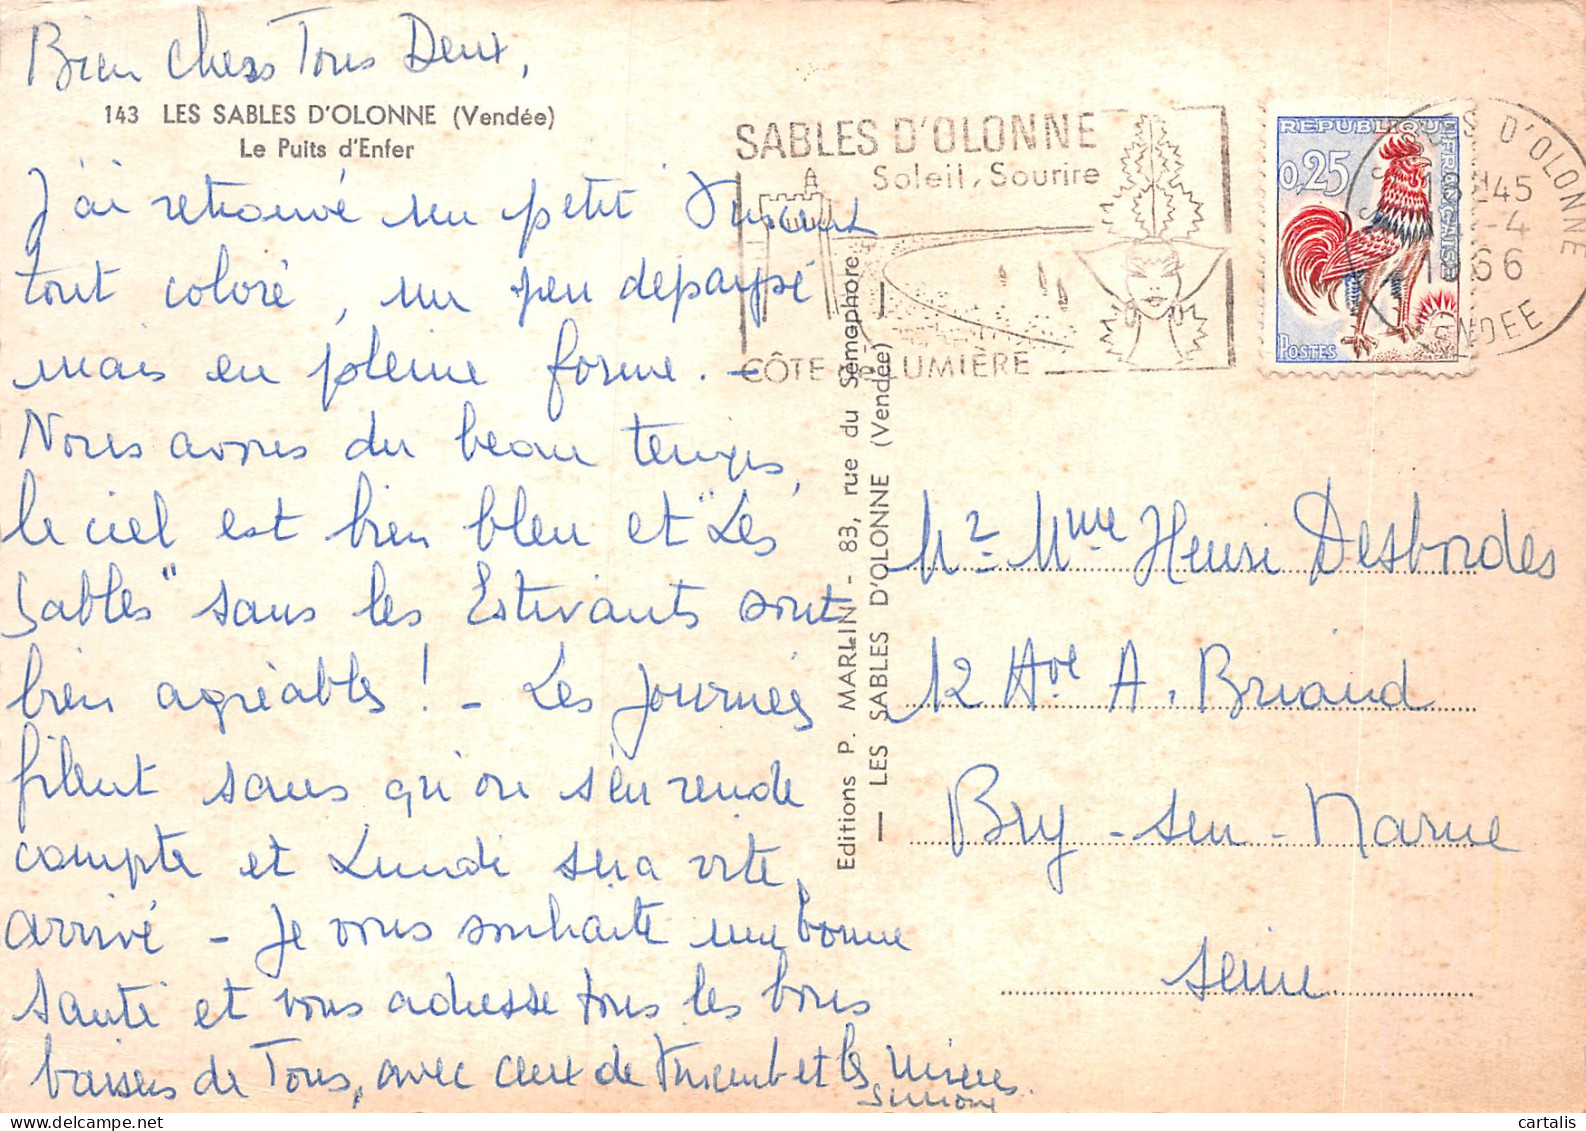 Bien Chers Tous Deux,
143 LES SABLES D'OLONNE (Vendée)
Le Puits d'Enfer
J'ai retrouvé un petit Vincent
tout coloré, un peu dépaysé
mais en pleine forme. -
Nous avons du beau temps,
le ciel est bien bleu et "Les
Sables" sans les Estivants sont
bien agréables ! - Les journées
filent sans qu'on s'en rende
compte et Lundi sera vite
arrivé - Je vous souhaite une bonne
Santé et vous adresse tous les bons
baisers de Tous, avec ceux de Vincent et les Miens.
Simone
Editions P. MARLIN - 83, rue du Sémaphore
— LES SABLES D'OLONNE (Vendée) —
SABLES D'OLONNE
Soleil, Sourire
CÔTE DE LUMIÈRE
REPUBLIQUE FRANÇAISE
0,25
POSTES
D'OLONNE
45
-4
1966
VENDEE
Mr Mme Henri Desbordes
12 Ave A. Briand
Bry-sur-Marne
Seine
cartalis